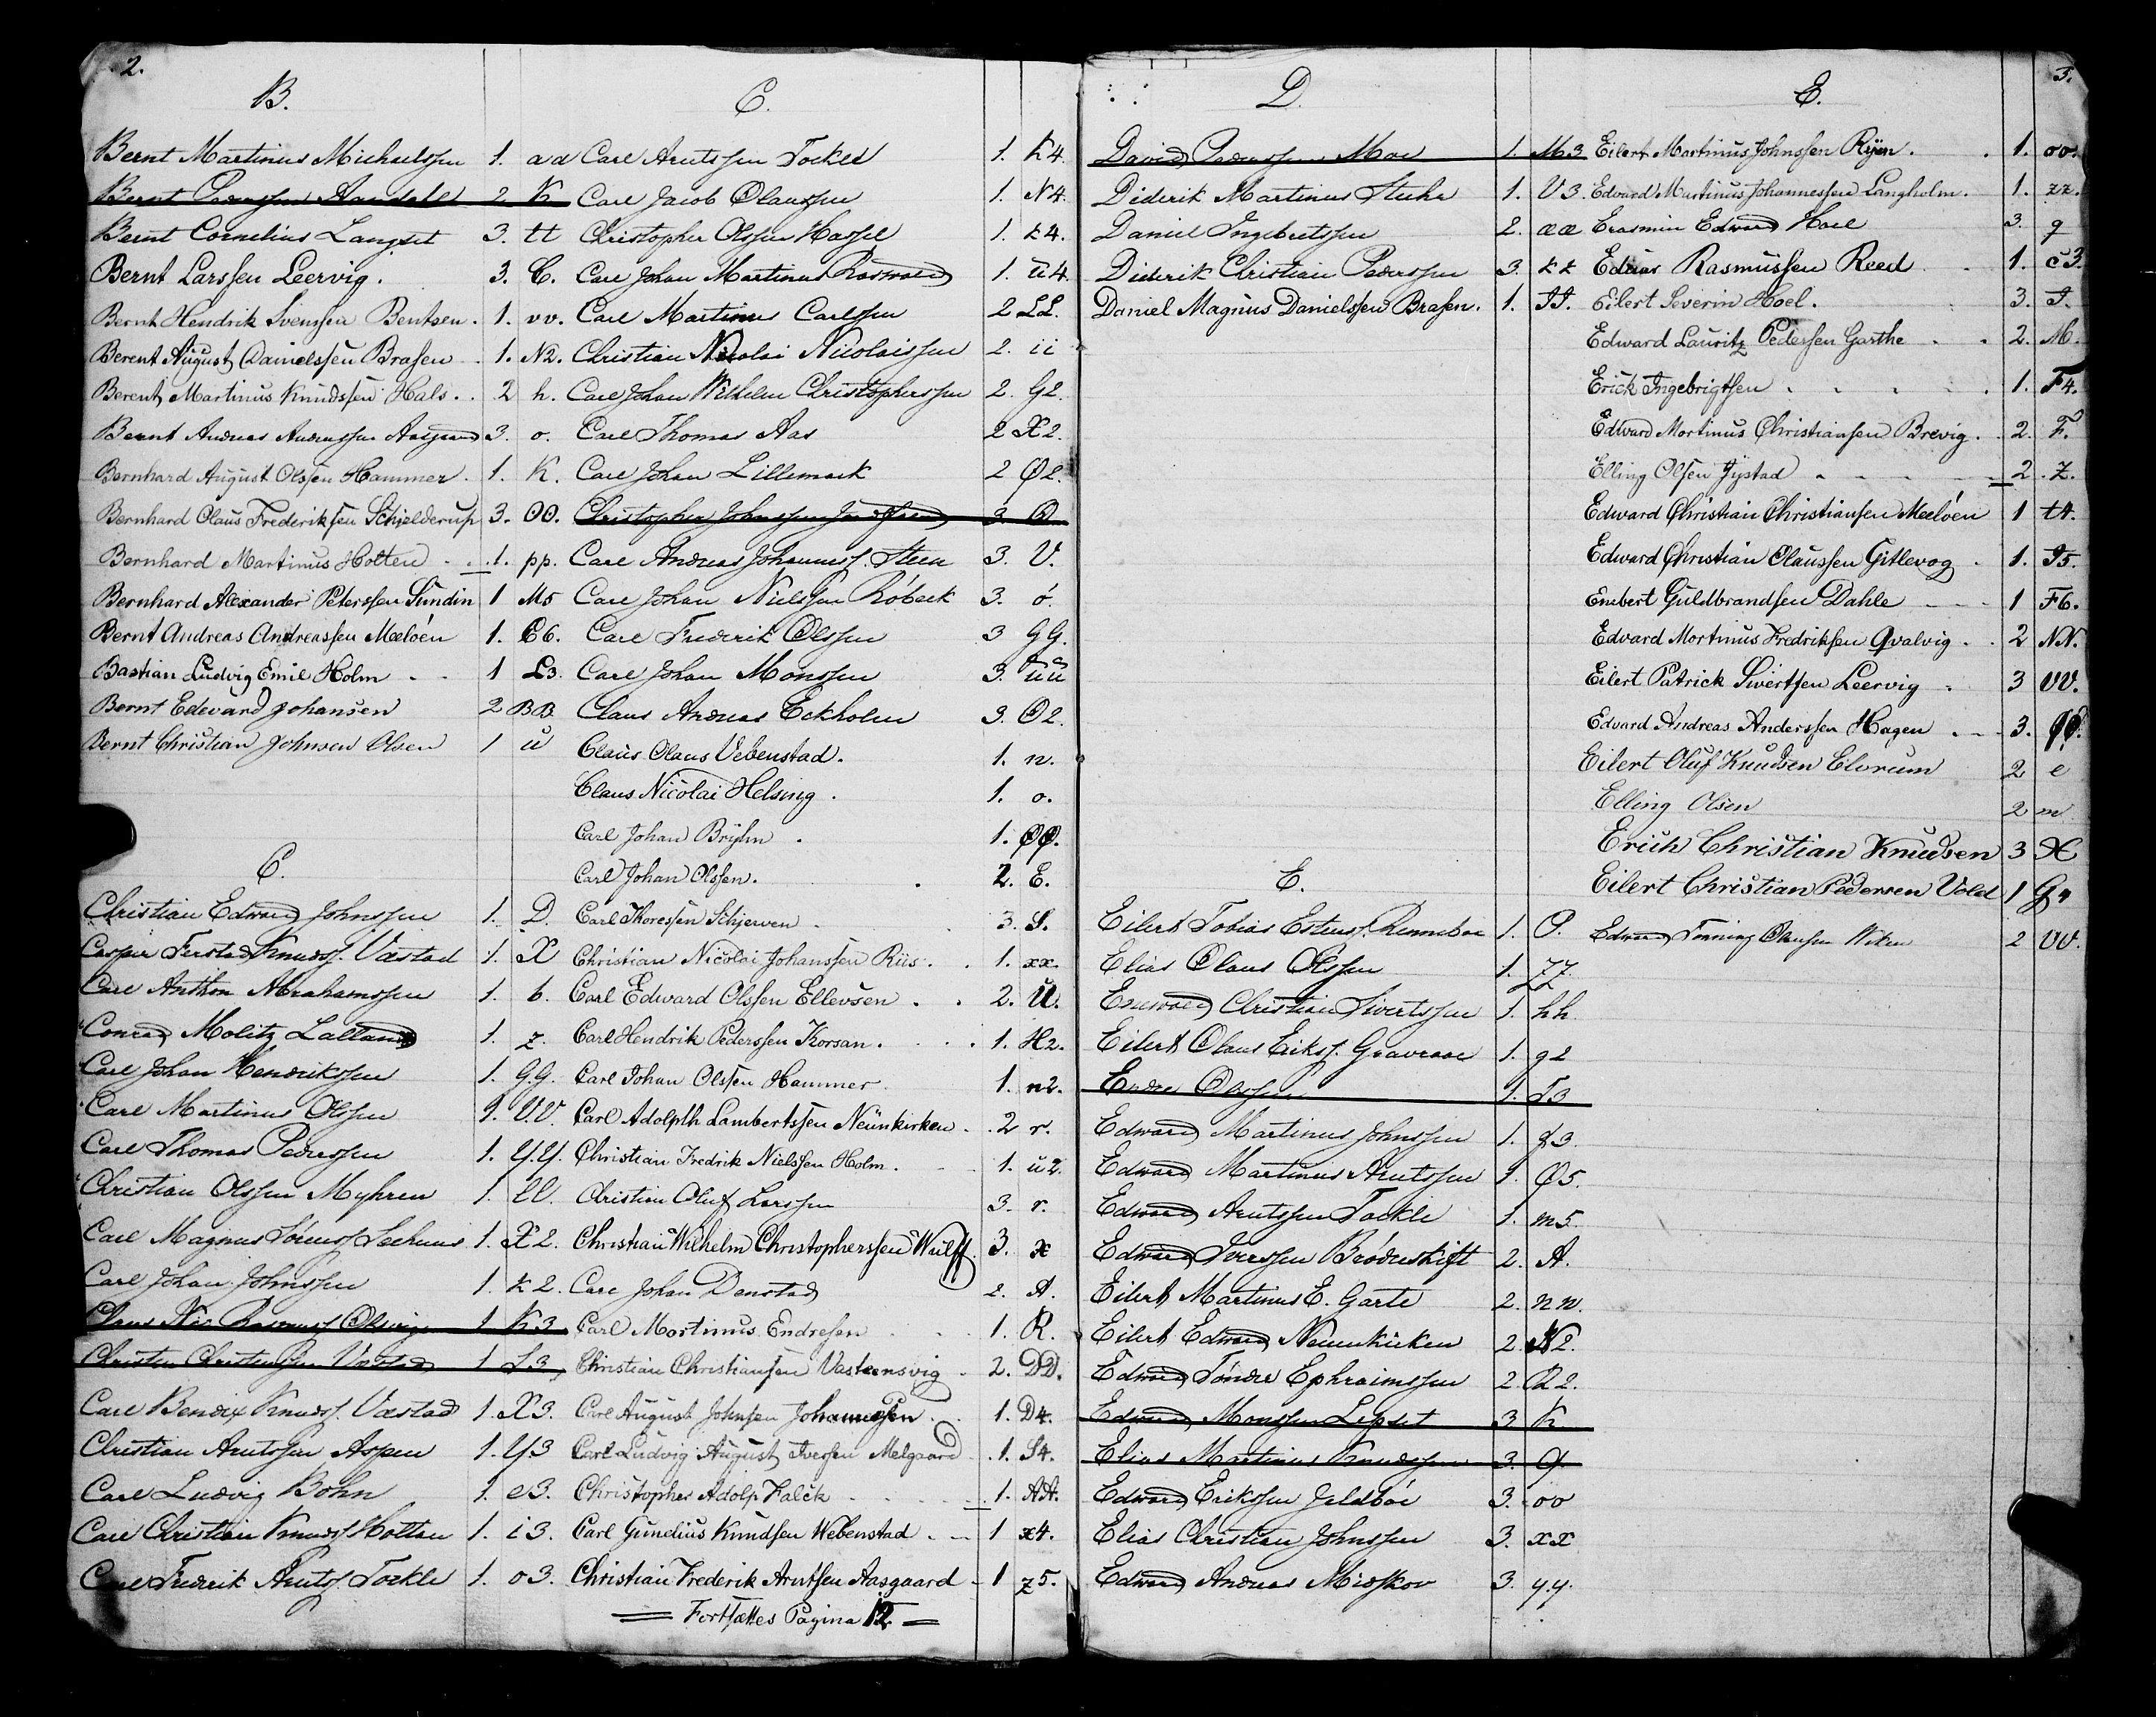 2.
B.
Bernt Martinus Michaelssen 1. aa
Bernt Pederssen 2 K
Bernt Cornelius Langset 3. tt
Bernt Larssen Leervig. 3. C.
Bernt Hendrik Svenssen Bentsen. 1. vv.
Berent August Danielssen Brasen. 1. N2.
Berent Martinus Knudssen Hals. 2 h.
Bernt Andreas Andreassen Aasgaard 3. o.
Bernhard August Olssen Hammer. 1. K.
Bernhard Olaus Frederiksen Schjelderup 3. OO.
Bernhard Martinus Holten 1. pp.
Bernhard Alexander Peterssen Sundin 1 M5
Bernt Andreas Andreassen Meelöen 1. C6.
Bastian Ludvig Emil Holm 1 L3.
Bernt Edevard Johansen 2 BB
Bernt Christian Johnsen Olsen 1 ů
C.
Christian Edward Johnssen 1. D.
Casper Ferstad Knuds. Vastad 1. X
Carl Anthon Abrahamssen 1. b.
Conrad Molitz Lalland 1. z.
Carl Johan Hendrikssen 1. GG.
Carl Martinus Olssen 1. VV.
Carl Thomas Pederssen 1. YY.
Christian Olssen Myhren 1. ll.
Carl Magnus Sörens. Seehuus 1. X2.
Carl Johan Johnssen 1. k2.
Claus Nic Rasmuss. 1 K3
Christen Christenssen Vastad 1 S3
Carl Bendix Knuds. Vastad 1. X3.
Christian Arntssen Aspen 1. Y3
Carl Ludvig Bohn 1. e3.
Carl Christian Knuds. Holten 1. i3.
Carl Fredrik Arnts. Tockle 1. o3.
C.
Carl Arntssen Tockle 1. K4.
Carl Jacob Olaussen 1. N4.
Christopher Olssen Hassel 1. k4.
Carl Johan Martinus Roswald 1. ů4.
Carl Martinus Carlssen 2 LL.
Christian Nicolai Nicolaissen 2. ii
Carl Johan Wilhelm Christophersen 2. G2.
Carl Thomas Aas 2 X2.
Carl Johan Lillemark 2 Ø2.
Christopher Johnssen 3. B
Carl Andreas Johannes. Steen 3. V.
Carl Johan Nielssen Röbeck 3. ö.
Carl Frederik Olssen 3 GG.
Carl Johan Monssen 3. ůů
Claus Andreas Eckholm 3. O2.
Claus Olaus Vebenstad. 1. n.
Claus Nicolai Helsing. 1. o.
Carl Johan Bryhn. 1. ØØ.
Carl Johan Olssen. 2. E.
Carl Thoressen Schjerven 3. S.
Christian Nicolai Johanssen Riis. 1. xx.
Carl Edward Olssen Ellevsen. 2. Ů.
Carl Hendrik Pederssen Korsan. 1. H2.
Carl Johan Olssen Hammer. 1. n2.
Carl Adolpth Lambertssen Neunkirken. 2 r.
Christian Fredrik Nielssen Holm. 1. u2.
Christian Oluf Larssen 3. r.
Christian Wilhelm Christopherssen Wulff. 3. x
Carl Johan Denstad 2. A.
Carl Mortinus Endresen 1. R.
Christian Christiansen Vasteensvig 2. DD.
Carl August Johnsen Johannessen. 1. D4.
Carl Ludvig August Iversen Melgaard 1. S4.
Christopher Adolp Falck 1. AA.
Carl Gunelius Knudsen Webenstad 1 x4.
Christian Frederik Arntsen Aasgaard 1 z5.
Fortsættes Pagina 12.
D.
David Pederssen Moe 1. M3
Diderik Martinus Stuhr 1. V3.
Daniel Ingebretssen 2. ææ
Diderik Christian Pederssen 3. kk
Daniel Magnus Danielssen Brasen. 1. II.
E.
Eilert Tobias Estens. Renneboe 1. P.
Elias Olaus Olssen 1. ZZ
Enewald Christian Sivertssen 1. hh.
Eilert Olaus Eriks. Gravraae 1. g2
Endre Olssen 1. T3
Edward Martinus Johnssen 1. f3.
Edward Martinus Arntssen 1. Ø5.
Edward Arntssen Tockle 1. m5.
Edward Iverssen Bröderskift 2. A.
Eilert Martinus E. Garte 2. nn.
Eilert Edward Neunkirken 2. N2.
Edward Töndre Ephraimssen 2. R2.
Edward Monssen Lipset 3 K
Elias Martinus Knudssen 3. Q.
Edward Erikssen Jeldböe 3. oo
Elias Christian Johnssen 3. xx
Edward Andreas Midskov 3. yy.
3.
E.
Eilert Martinus Johnssen Ryen. 1. oo.
Edvard Martinus Johannessen Langholm. 1. zz.
Erasmin Edward Hoel 3. q
Edvias Rasmussen Reed 1. c3.
Eilert Severin Hoel. 3. I.
Edward Lauritz Pedersen Garthe 2. M.
Erick Ingebrigtsen 1. F4.
Edward Mortinus Christiansen Brevig. 2. F.
Elling Olsen Jystad 2. Z.
Edward Christian Christiansen Meelöen 1 t4.
Edward Christian Olaussen Gitlevog 1. I5.
Enebert Guldbrandsen Dahle 1 F6.
Edvard Mortinus Fredriksen Qvalvig. 2 NN.
Eilert Patrick Sivertsen Leervig. 3 VV.
Edvard Andreas Anderssen Hagen 3. QQ.
Eilert Oluf Knudsen Elvrum 2 e
Elling Olsen 2 m
Erich Christian Knudsen 3 X
Eilert Christian Pedersen Vold 1 G4
Edward Tonning Olausen Wiken 2 VV.